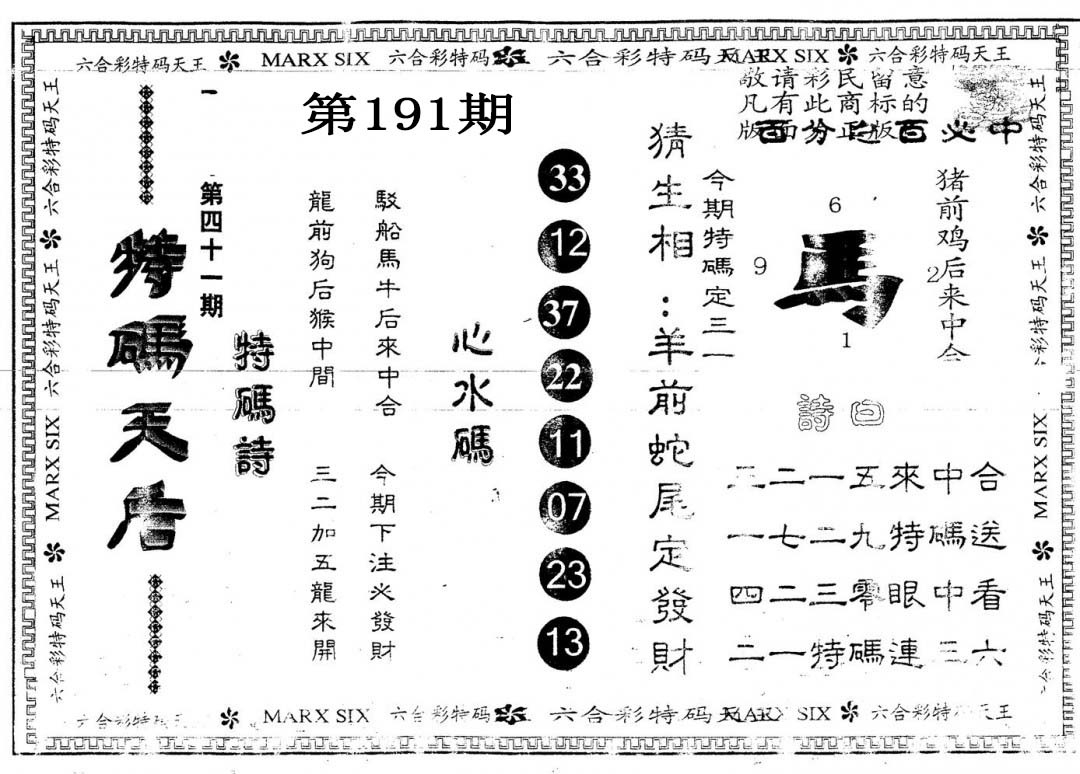 六合彩特码天王 MARX SIX 六合彩特码 六合彩特码天王 MARX SIX 六合彩特码天王
敬请彩民留意
凡有此商标的
版面为正版
百分之百必中
第191期
猪前鸡后来中合
6
9
馬
2
1
今期特碼定三一
猜生相:羊前蛇尾定發財
曰詩
三二一五來中合
一七二九特碼送
四二三零眼中看
二一特碼連三六
33
12
37
22
11
07
23
13
心水碼
駁船馬牛后來中合
今期下注必發財
龍前狗后猴中間
三二加五龍來開
特碼詩
第四十一期
特碼天后
六合彩特码天王
六合彩特码天王
MARX SIX
六合彩特码天王
六合彩特码天王
彩特码天王
MARX SIX
六合彩特码天王
六合彩特码天王 MARX SIX 六合彩特码 六合彩特码天 MARX SIX 六合彩特 天王